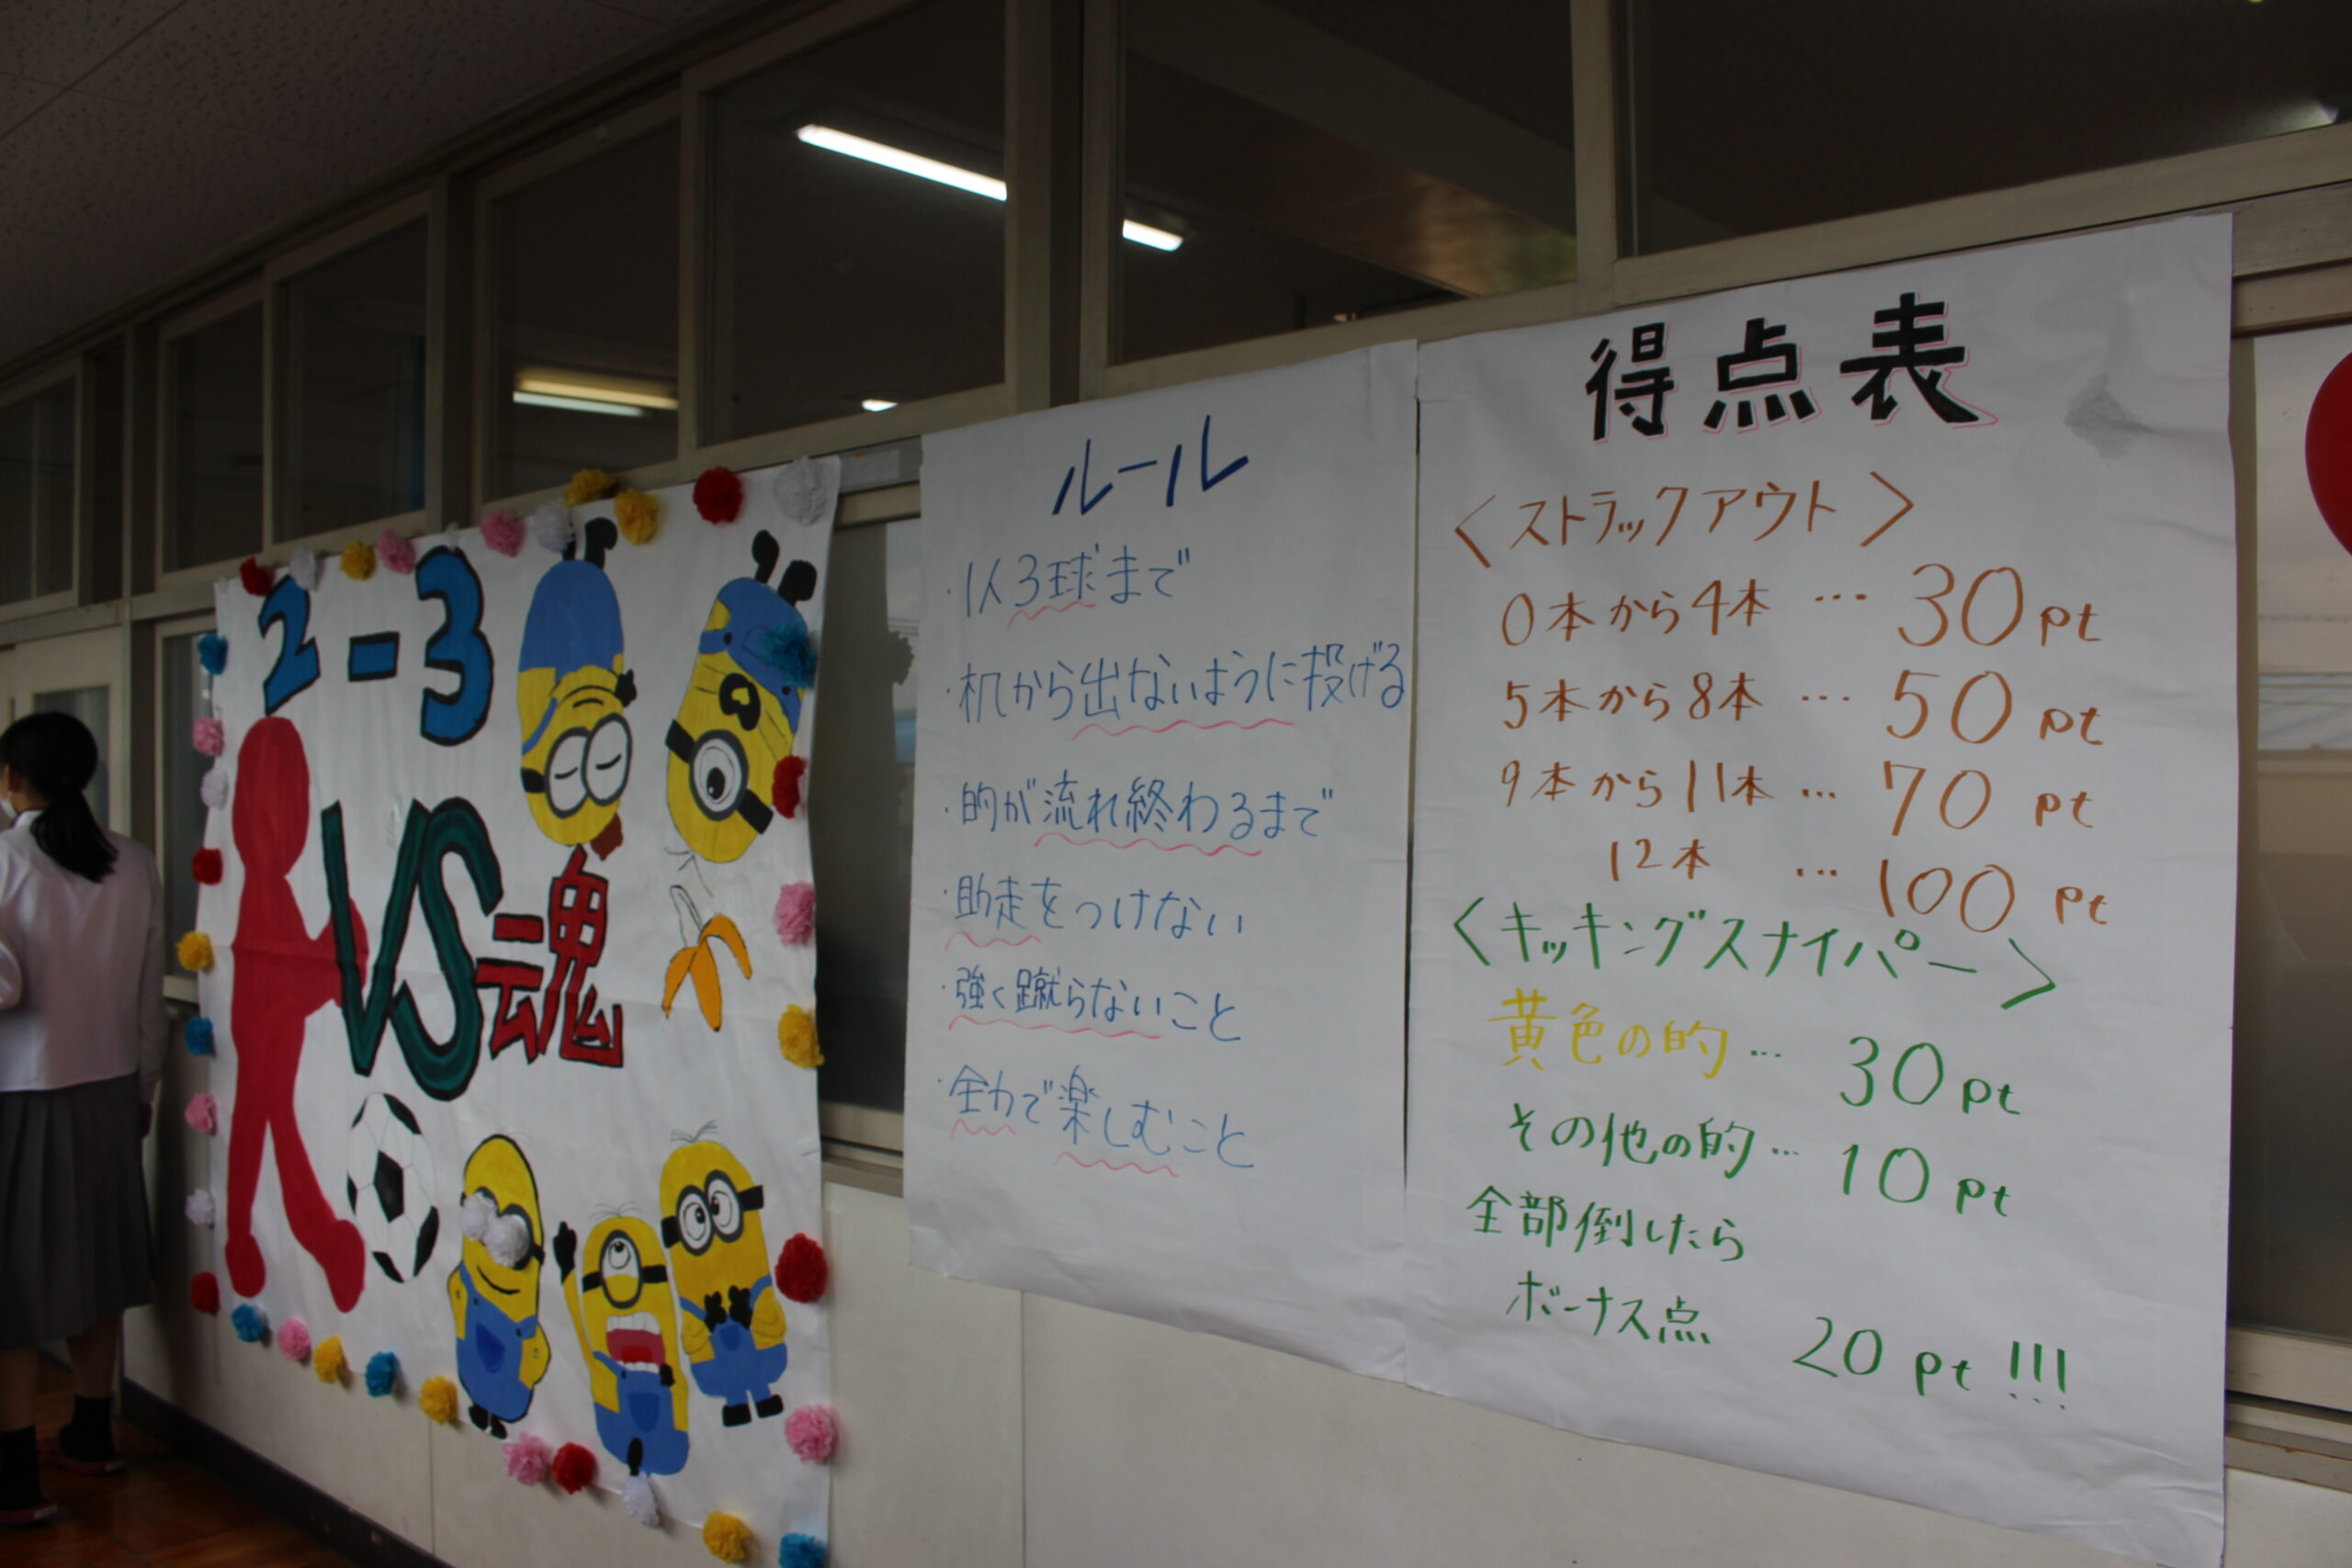 2-3
VS魂
ルール
・1人3球まで
・机から出ないように投げる
・的が流れ終わるまで
・助走をつけない
・強く蹴らないこと
・全力で楽しむこと
得点表
<ストラックアウト>
0本から4本 … 30pt
5本から8本 … 50pt
9本から11本 … 70pt
12本 … 100pt
<キッキングスナイパー>
黄色の的 … 30pt
その他の的 … 10pt
全部倒したら
ボーナス点 20pt!!!